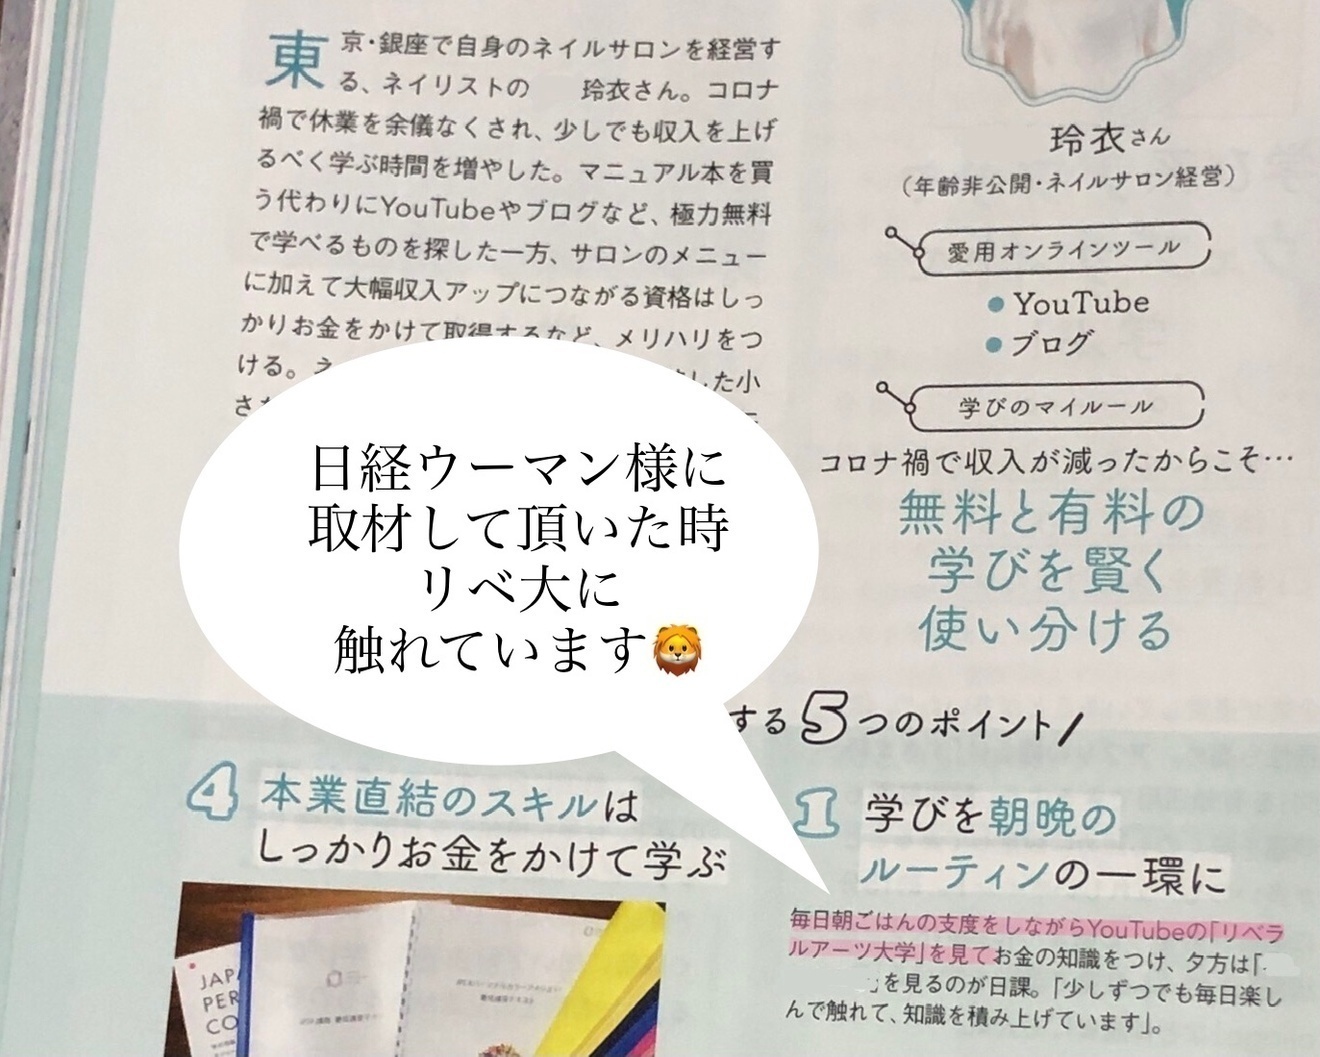 東京・銀座で自身のネイルサロンを経営す
る、ネイリストの 玲衣さん。コロナ
禍で休業を余儀なくされ、少しでも収入を上げ
るべく学ぶ時間を増やした。マニュアル本を買
う代わりにYouTubeやブログなど、極力無料
で学べるものを探した一方、サロンのメニュー
に加えて大幅収入アップにつながる資格はしっ
かりお金をかけて取得するなど、メリハリをつ
ける。ネ
した小
さ
玲衣さん
(年齢非公開・ネイルサロン経営)
愛用オンラインツール
●YouTube
●ブログ
学びのマイルール
コロナ禍で収入が減ったからこそ…
無料と有料の
学びを賢く
使い分ける
日経ウーマン様に
取材して頂いた時
リベ大に
触れています🦁
する5つのポイント/
4 本業直結のスキルは
しっかりお金をかけて学ぶ
JAPA
PER
CO
1 学びを朝晩の
ルーティンの一環に
毎日朝ごはんの支度をしながらYouTubeの「リベラ
ルアーツ大学」を見てお金の知識をつけ、夕方は「
」を見るのが日課。「少しずつでも毎日楽し
んで触れて、知識を積み上げています」。